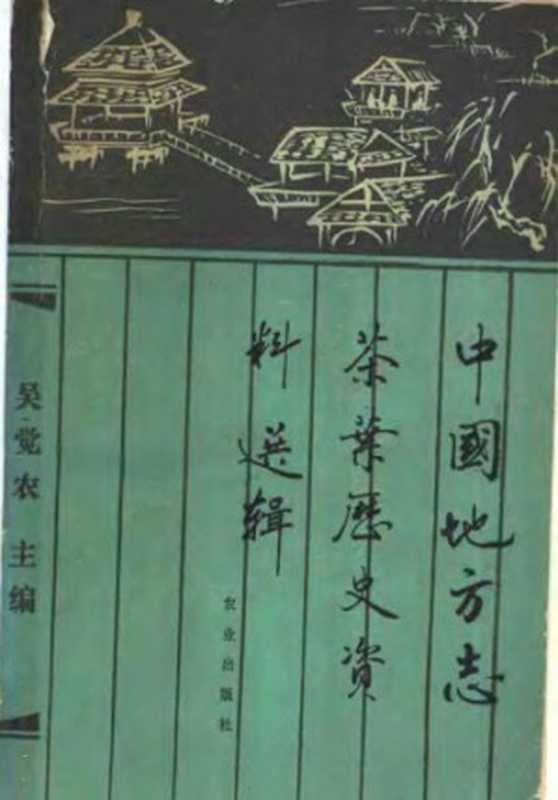 中國地方志
茶葉歷史資
料選辑
农业出版社
吴觉农 主编